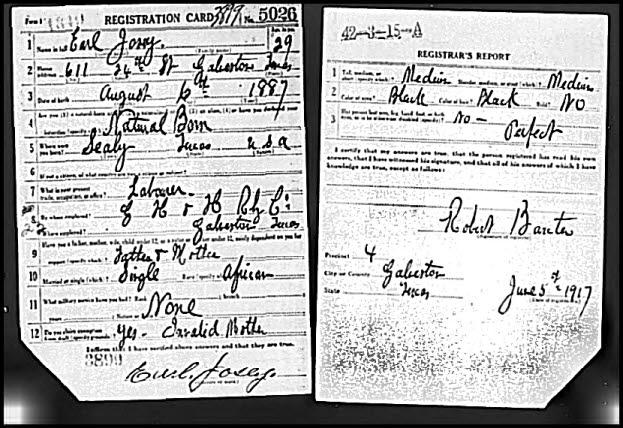 Form 1 1849 REGISTRATION CARD 3879 No. 5026
1 Name in full Earl Josey. Age, in yrs. 29
2 Home address 611 24th St Galveston Texas
3 Date of birth August 6th 1887
4 Natural Born
5 Where were you born? Sealy Texas U S A
6 If not a citizen, of what country are you a citizen or subject?
7 What is your present trade, occupation, or office? Laborer
8 By whom employed? G H & H Rly Co
Where employed? Galveston Texas
9 Have you a father, mother, wife, child under 12, or a sister or brother under 12, solely dependent on you for support (specify which)? Father & Mother
10 Married or single (which)? Single Race (specify which)? African
11 What military service have you had? Rank branch
years Nation or State None
12 Do you claim exemption from draft (specify grounds)? Yes - Invalid Mother
I affirm that I have verified above answers and that they are true.
3899
Earl Josey
42-3-15-A
REGISTRAR'S REPORT
1 Tall, medium, or short (specify which)? Medium Slender, medium, or stout (which)? Medium
2 Color of eyes? Black Color of hair? Black Bald? No
3 Has person lost arm, leg, hand, foot, or both eyes, or is he otherwise disabled (specify)? No -
Perfect
I certify that my answers are true, that the person registered has read his own
answers, that I have witnessed his signature, and that all of his answers of which I have
knowledge are true, except as follows:
Robert Baxter
(Signature of registrar)
Precinct 4
City or County Galveston
State Texas
June 5th 1917
(Date of registration)